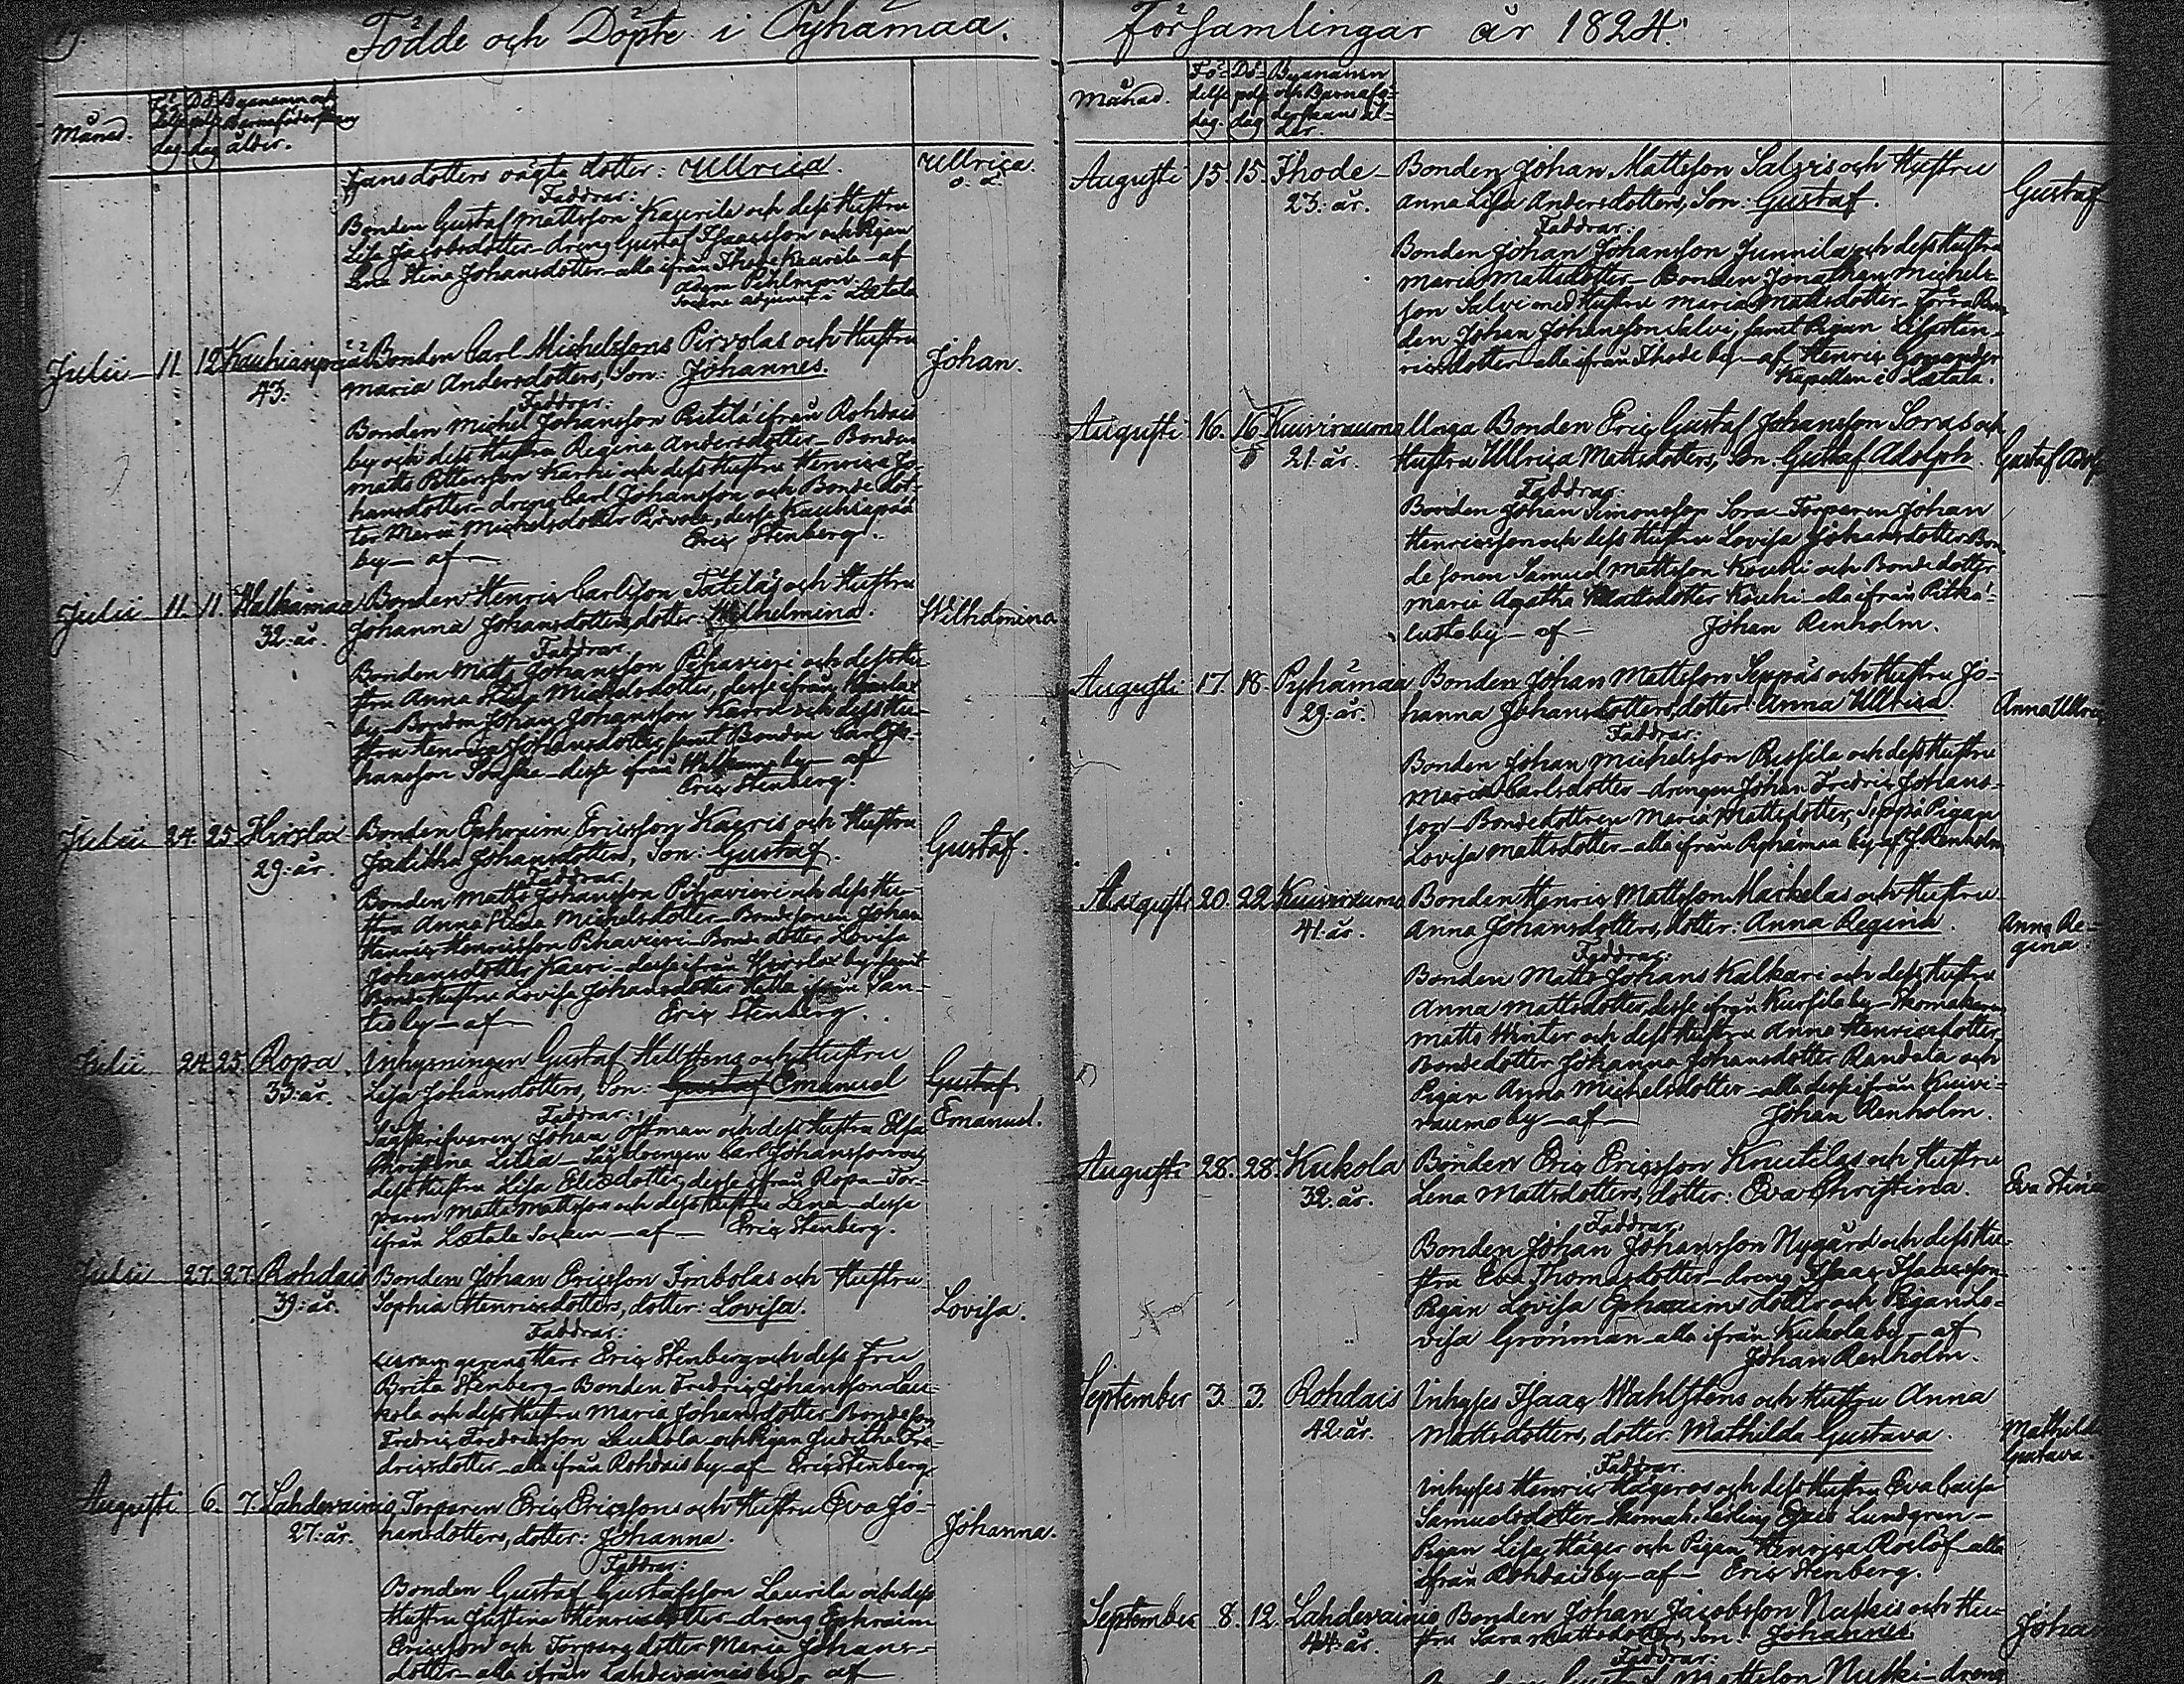 Födde och Döpte i Pyhämaa.
Månad.
Fö-
delse
dag
Dö-
pelse
dag
Byanamn och
ålder.
Hansdotters oägta dotter: Ullrica.
Ullrica.
o. ä.
Faddrar:
Bonden Gustaf Mattsson Kaurila och dess Hustru
Lisa Jacobsdotter – dreng Gustaf Isaacsson och Pigan
Lena Stina Johansdotter – alla ifrån Ihode – af
Adam Pihlman
Sockne adjunct i Letala
Julii 11. 12. Kauhianpää Bonden Carl Michelssons Pirvolas och Hustru
Johan.
43. Maria Andersdotters, Son: Johannes.
Faddrar:
Bonden Michel Johansson Pietilä ifrån Rohdais
by och dess Hustru Regina Andersdotter – Bonden
Matts Pettersson Karhi och dess Hustru Henrica Jo-
hansdotter – dreng Carl Johansson och Bonde dot-
ter Maria Michelsdotter Pirvola, desse Kauhiapää
by – af – Eric Stenberg.
Julii 11. 11. Walkamaa Bonden Henric Carlsson Tätiläs och Hustru
32. år. Johanna Johansdotters, dotter: Wilhelmina.
Wilhelmina
Faddrar.
Bonden Matts Johansson Pihavieri och dess Hu-
stru Anna Stina Michelsdotter, desse ifrån Hirslax
by – Bonden Johan Johansson Karru och dess Hu-
stru Henrica Johansdotter, samt Bonden Carl Jo-
hansson – desse ifrån Walkama by – af
Eric Stenberg.
Julii 24. 25. Hirslax Bonden Ephraim Ericsson Kaeris och Hustru
29. år. Juditha Johansdotters, Son: Gustaf.
Gustaf.
Faddrar
Bonden Matts Johansson Pihavieri och dess Hu-
stru Anna Stina Michelsdotter – Bondesonen Johan
Henric Henricsson Pihavieri – Bonde dotter Lovisa
Johansdotter Kaeri – desse ifrån Hirslax by samt
Bonde Hustru Lovisa Johansdotter ifrån San-
tio by – af – Eric Stenberg.
Julii 24. 25. Ropa Inhysningen Gustaf Hellstens och Hustru
33. år. Lisa Johansdotters, Son: Gustaf Emanuel
Gustaf
Emanuel.
Faddrar:
Sågskrifvaren Johan Öhman och dess Hustru Elsa
Christina Lilia – Sågdrengen Carl Johansson och
dess Hustru Lisa Eliædotter, desse ifrån Ropa – Tor-
paren Matts Mattsson och dess Hustru Lena – desse
ifrån Letala Socken – af – Eric Stenberg.
Julii 27. 27. Rohdais Bonden Johan Ericsson Imbolas och Hustru
39. år. Sophia Henricsdotters, dotter: Lovisa.
Lovisa.
Faddrar:
Herr Eric Stenberg och dess Fru
Brita Stenberg – Bonden Fredric Johansson Lau-
kola och dess Hustru Maria Johansdotter – Bondeson
Fredric Fredricsson Laukola och Pigan Juditha Fre-
dricsdotter – alla ifrån Rohdais by – af Eric Stenberg
Augusti 6. 7. Lahdevainio Torparen Eric Ericssons och Hustru Eva Jo-
27. år. hansdotters, dotter: Johanna.
Johanna.
Faddrar:
Bonden Gustaf Gustafsson Laurila och dess
Hustru Justina Henricsdotter – dreng Ephraim
Ericsson och Torpare dotter Maria Johans-
dotter – alla ifrån Lahdevainio by – af
Församlingar år 1824.
Månad.
Fö-
delse
dag.
Dö-
pelse
dag
Byanamn
och Barnafö-
derskans ål-
der.
Augusti 15. 15. Ihode Bonden Johan Mattsson Salvis och Hustru
23. år. Anna Lisa Andersdotters, Son: Gustaf.
Gustaf
Faddrar:
Bonden Johan Johansson Junnila och dess Hustru
Maria Mattsdotter – Bonden Jonathan Michels-
son Salvi med Hustru Maria Mattsdotter – Förra Bon-
den Johan Johansson Salvi, samt Pigan Lisa Hen-
ricsdotter – alla ifrån Ihode by – af Henric Gonander
Kapellan i Letala.
Augusti 16. 16. Kuivirauma Unga Bonden Eric Gustaf Johansson Soras och
21. år. Hustru Ullrica Mattsdotters, Son: Gustaf Adolph.
Gustaf Adolf
Faddrar:
Bonden Johan Simonsson Sora – Torparen Johan
Henricsson och dess Hustru Lovisa Johansdotter Bon-
de sonen Samuel Mattsson Kouhi och Bonde dotter
Maria Agatha Mattsdotter Kouhi – alla ifrån Pitkä-
lusta by – af – Johan Renholm.
Augusti 17. 18. Pyhämaa Bonden Johan Mattsson Seppäs och Hustru Jo-
29. år. hanna Johansdotters, dotter: Anna Ullrica.
Anna Ullrica
Faddrar:
Bonden Johan Michelsson Rissila och dess Hustru
Maria Carlsdotter – drengen Johan Fredric Johans-
son – Bondedottren Maria Mattsdotter Seppä Pigan
Lovisa Mattsdotter – alla ifrån Pyhämaa by – af J. Renholm
Augusti 20. 22. Kuivirauma Bonden Henric Mattsson Markelas och Hustru
41. år. Anna Johansdotters, dotter: Anna Regina.
Anna Re-
gina
Faddrar:
Bonden Matts Johans Kalkari och dess Hustru
Anna Mattsdotter, desse ifrån Kursila by – Skomakaren
Matts Winter och dess Hustru Anna Henricsdotter,
Bondedotter Johanna Johansdotter Randala och
Pigan Anna Michelsdotter – alla desse ifrån Kuivi-
raumo by – af – Johan Renholm.
Augusti 28. 28. Kukola Bonden Eric Ericsson Knutilas och Hustru
32. år. Lena Mattsdotters, dotter: Eva Christina.
Eva Stina
Faddrar:
Bonden Johan Johansson Nygård och dess Hu-
stru Eva Thomasdotter – dreng Isaac Isaacsson
Pigan Lovisa Ephraims dotter och Pigan Lo-
visa Grönman – alla ifrån Kukola by – af
Johan Renholm.
September 3. 3. Rohdais Inhyses Isaac Wahlstens och Hustru Anna
42. år. Mattsdotters, dotter: Mathilda Gustava.
Mathilda
Gustava.
Faddrar.
Inhyses Henric Hägeros och dess Hustru Eva Caisa
Samuelsdotter – Lundgren –
Pigan Lisa Häger och Pigan Henrica Roslöf – alla
ifrån Rohdais by – af – Eric Stenberg.
September 8. 12. Lahdevainio Bonden Johan Jacobsson Nuskis och Hu-
44. år. stru Sara Mattsdotters, Son: Johannes.
Johan
Faddrar:
Bonden Gustaf Mattsson Nuski – dreng